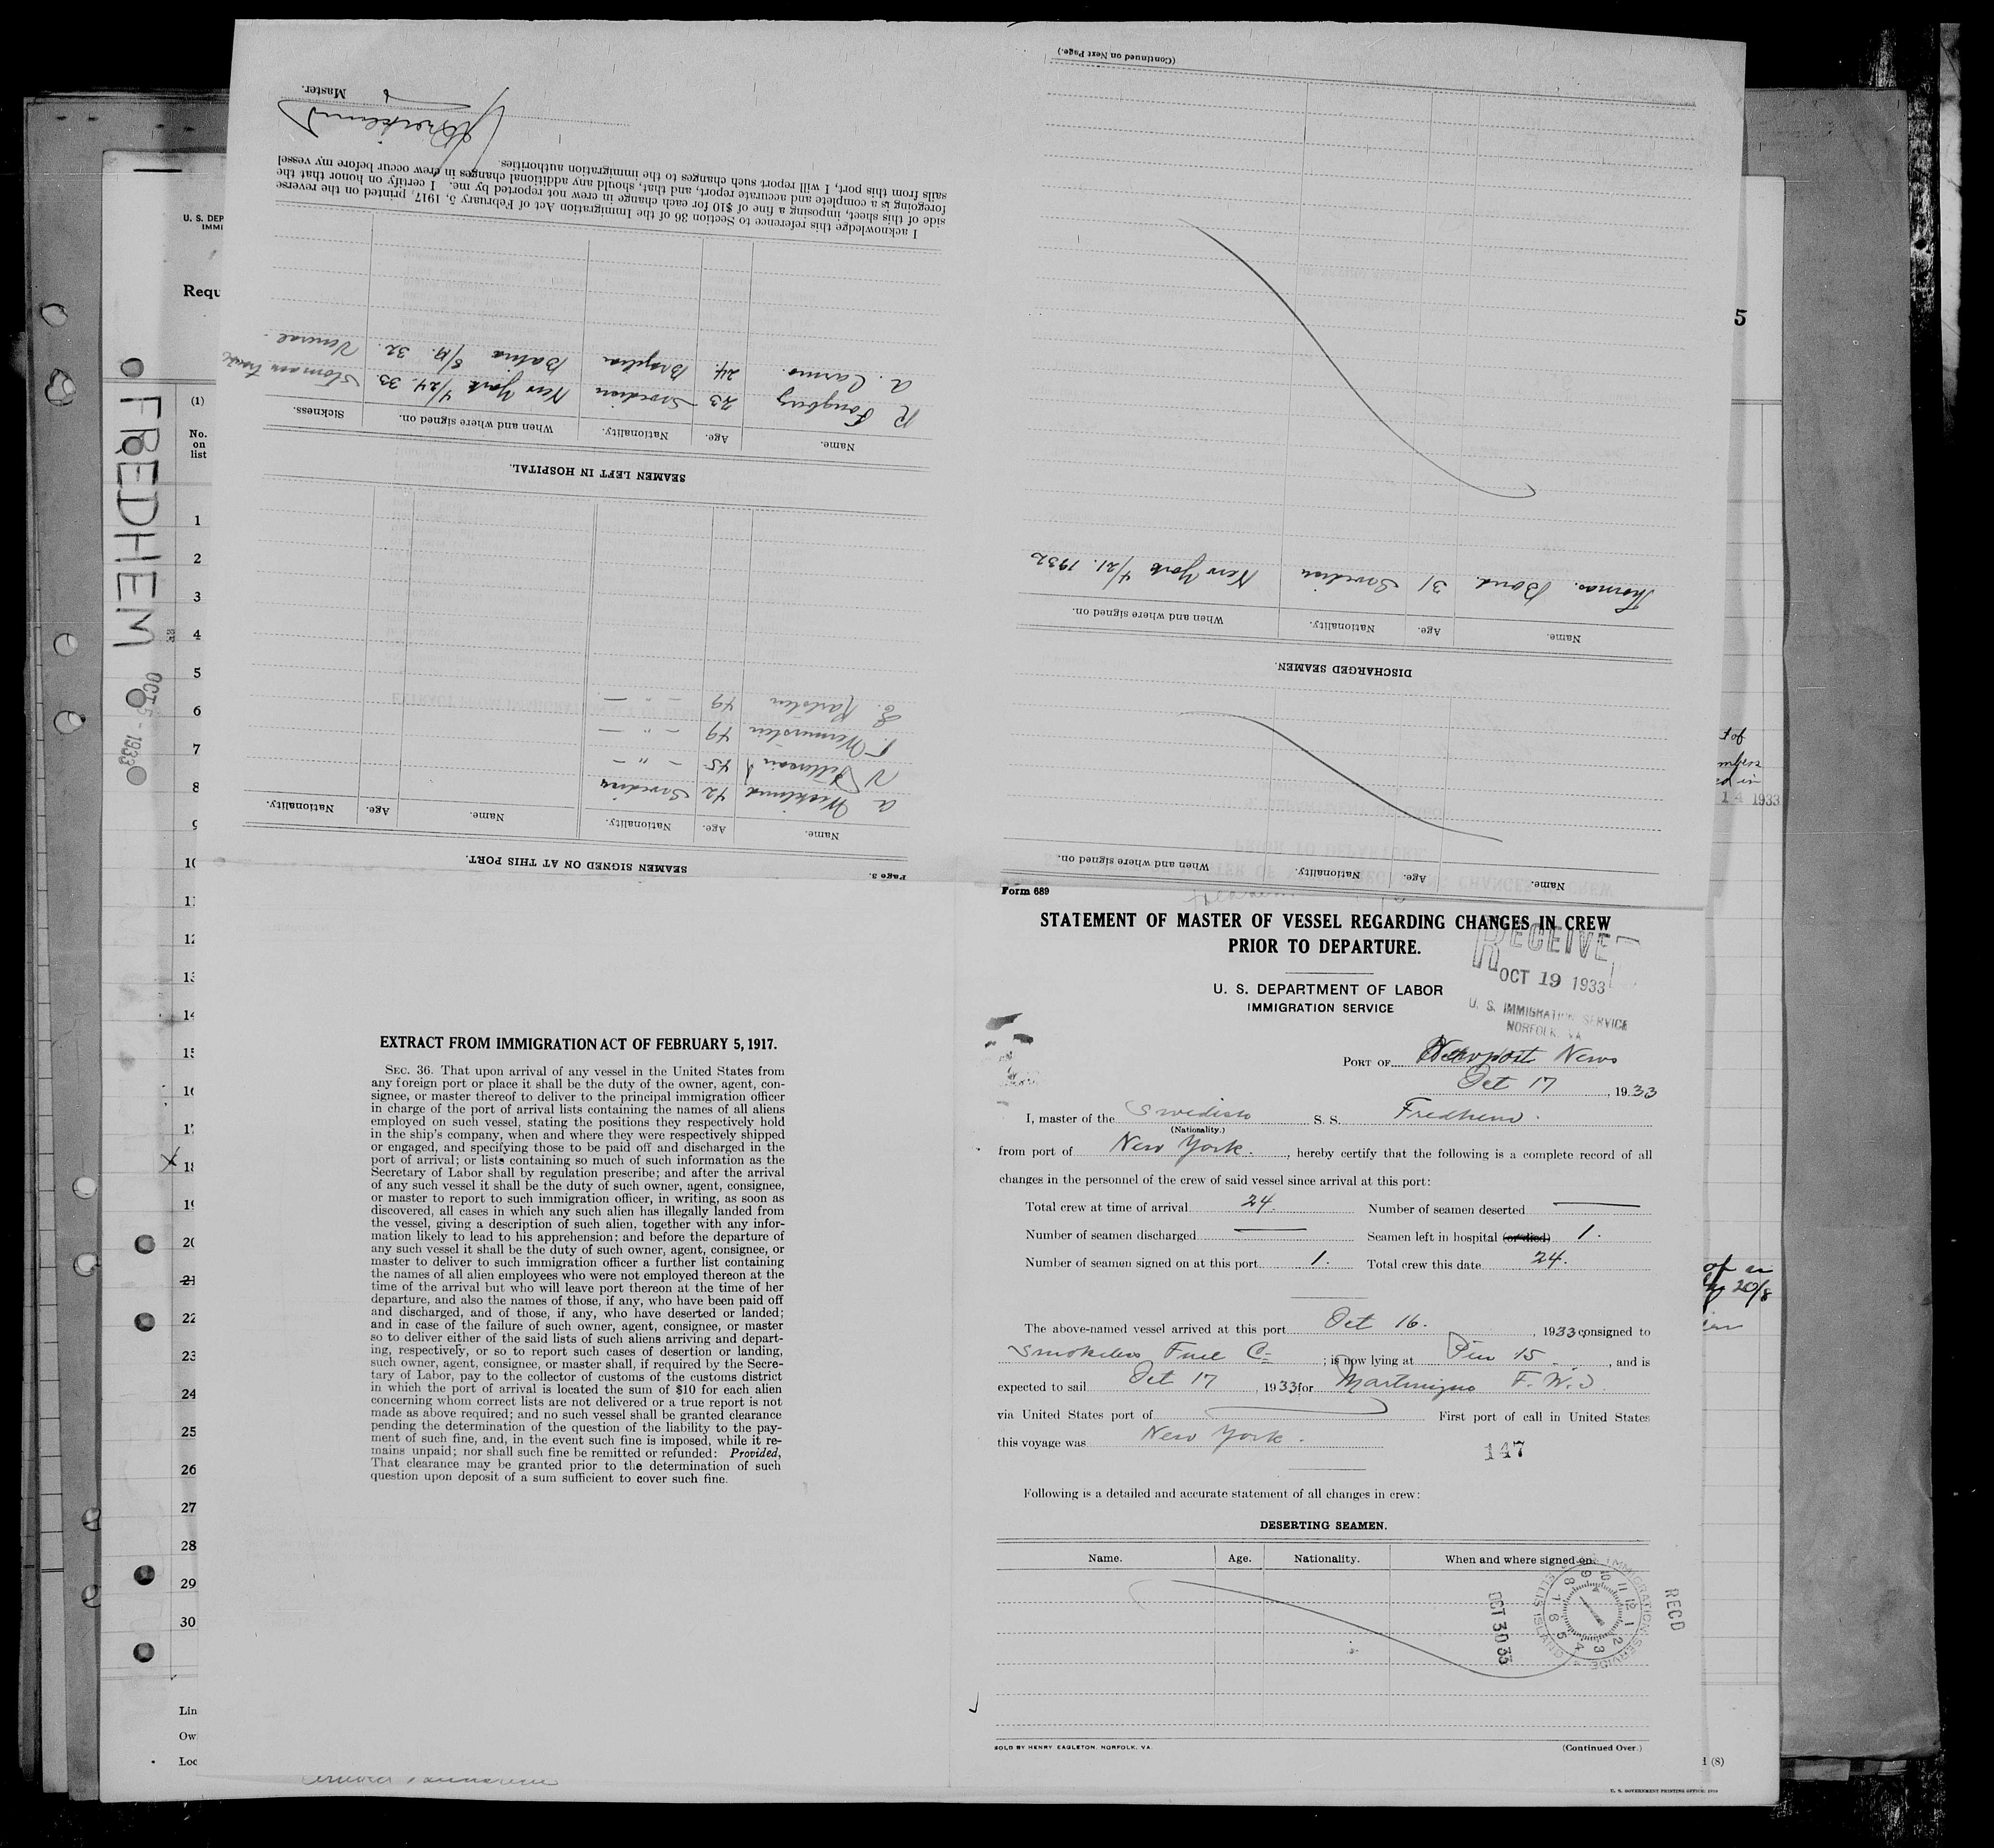 FREDHEM
OCT 5 - 1933
U. S. DEP
IMMI
Requ
(1)
No.
on
list
1
2
3
4
5
6
7
8
20
22
23
24
25
26
27
28
29
30
Lin
Ow
Loc
5
14 1933
20/8
1 (8)
U. S. GOVERNMENT PRINTING OFFICE
(Continued on Next Page.)
Name. Age. Nationality. When and where signed on.
DISCHARGED SEAMEN.
Name. Age. Nationality. When and where signed on.
Thomas. Bond. 31 Swedish New York 4/21. 1932
(Continued on Next Page.)
Page 3.
SEAMEN SIGNED ON AT THIS PORT.
Name. Age. Nationality. Name. Age. Nationality.
A 42 Swedish
N 45 - " -
49 - " -
E. Karlsten 49 - " -
SEAMEN LEFT IN HOSPITAL.
Name. Age. Nationality. When and where signed on. Sickness.
R Fongberg 23 Swedish New York 4/24. 33.
A. Carmo. 24. Bahia 5/19. 32. Veneral
I acknowledge this reference to Section 36 of the Immigration Act of February 5, 1917, printed on the reverse
side of this sheet, imposing a fine of $10 for each change in crew not reported by me. I certify on honor that the
foregoing is a complete and accurate report, and that, should any additional changes in crew occur before my vessel
sails from this port, I will report such changes to the immigration authorities.
Master.
EXTRACT FROM IMMIGRATION ACT OF FEBRUARY 5, 1917.
SEC. 36. That upon arrival of any vessel in the United States from
any foreign port or place it shall be the duty of the owner, agent, con-
signee, or master thereof to deliver to the principal immigration officer
in charge of the port of arrival lists containing the names of all aliens
employed on such vessel, stating the positions they respectively hold
in the ship's company, when and where they were respectively shipped
or engaged, and specifying those to be paid off and discharged in the
port of arrival; or lists containing so much of such information as the
Secretary of Labor shall by regulation prescribe; and after the arrival
of any such vessel it shall be the duty of such owner, agent, consignee,
or master to report to such immigration officer, in writing, as soon as
discovered, all cases in which any such alien has illegally landed from
the vessel, giving a description of such alien, together with any infor-
mation likely to lead to his apprehension; and before the departure of
any such vessel it shall be the duty of such owner, agent, consignee, or
master to deliver to such immigration officer a further list containing
the names of all alien employees who were not employed thereon at the
time of the arrival but who will leave port thereon at the time of her
departure, and also the names of those, if any, who have been paid off
and discharged, and of those, if any, who have deserted or landed;
and in case of the failure of such owner, agent, consignee, or master
so to deliver either of the said lists of such aliens arriving and depart-
ing, respectively, or so to report such cases of desertion or landing,
such owner, agent, consignee, or master shall, if required by the Secre-
tary of Labor, pay to the collector of customs of the customs district
in which the port of arrival is located the sum of $10 for each alien
concerning whom correct lists are not delivered or a true report is not
made as above required; and no such vessel shall be granted clearance
pending the determination of the question of the liability to the pay-
ment of such fine, and, in the event such fine is imposed, while it re-
mains unpaid; nor shall such fine be remitted or refunded: Provided,
That clearance may be granted prior to the determination of such
question upon deposit of a sum sufficient to cover such fine.
Form 689
STATEMENT OF MASTER OF VESSEL REGARDING CHANGES IN CREW
PRIOR TO DEPARTURE.
RECEIVE
OCT 19 1933
U. S. IMMIGRATION SERVICE
NORFOLK, VA
U. S. DEPARTMENT OF LABOR
IMMIGRATION SERVICE
PORT OF Newport News
Oct 17, 1933
I, master of the Swedish S. S. Fredhem.
(Nationality.)
from port of New York., hereby certify that the following is a complete record of all
changes in the personnel of the crew of said vessel since arrival at this port:
Total crew at time of arrival 24. Number of seamen deserted —
Number of seamen discharged — Seamen left in hospital (or died) 1.
Number of seamen signed on at this port 1. Total crew this date 24.
The above-named vessel arrived at this port Oct 16., 1933 consigned to
Smokeless Fuel Co; is now lying at Pier 15, and is
expected to sail Oct 17, 1933 for Martinique F. W. I.
via United States port of — First port of call in United States
this voyage was New York.
147
Following is a detailed and accurate statement of all changes in crew:
DESERTING SEAMEN.
Name. Age. Nationality. When and where signed on.
RECD
OCT 30 33
IMMIGRATION SERVICE
ELLIS ISLAND
SOLD BY HENRY EAGLETON, NORFOLK, VA.
(Continued Over.)